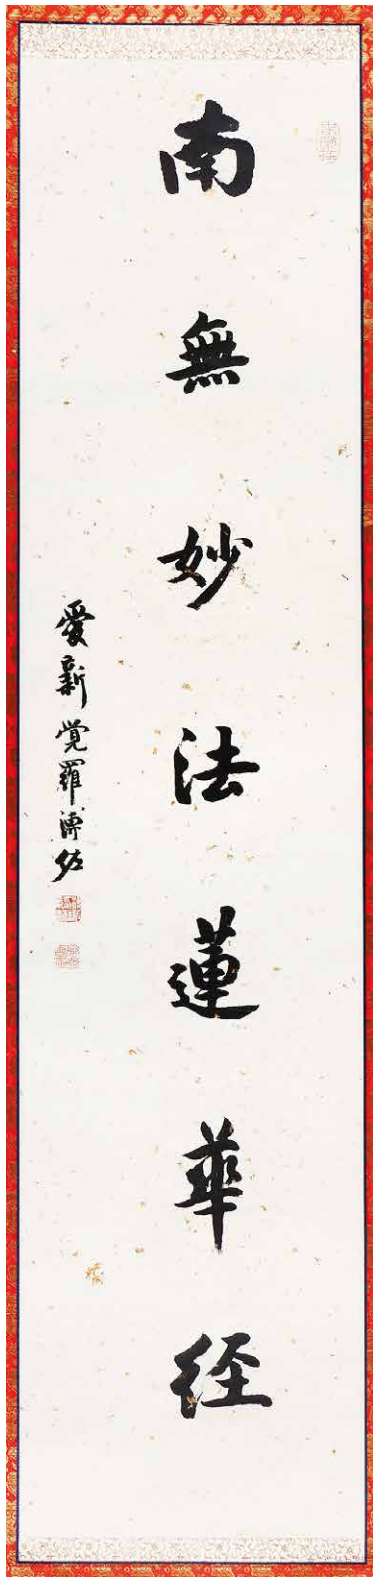 南無妙法蓮華経
愛新覚羅溥佐